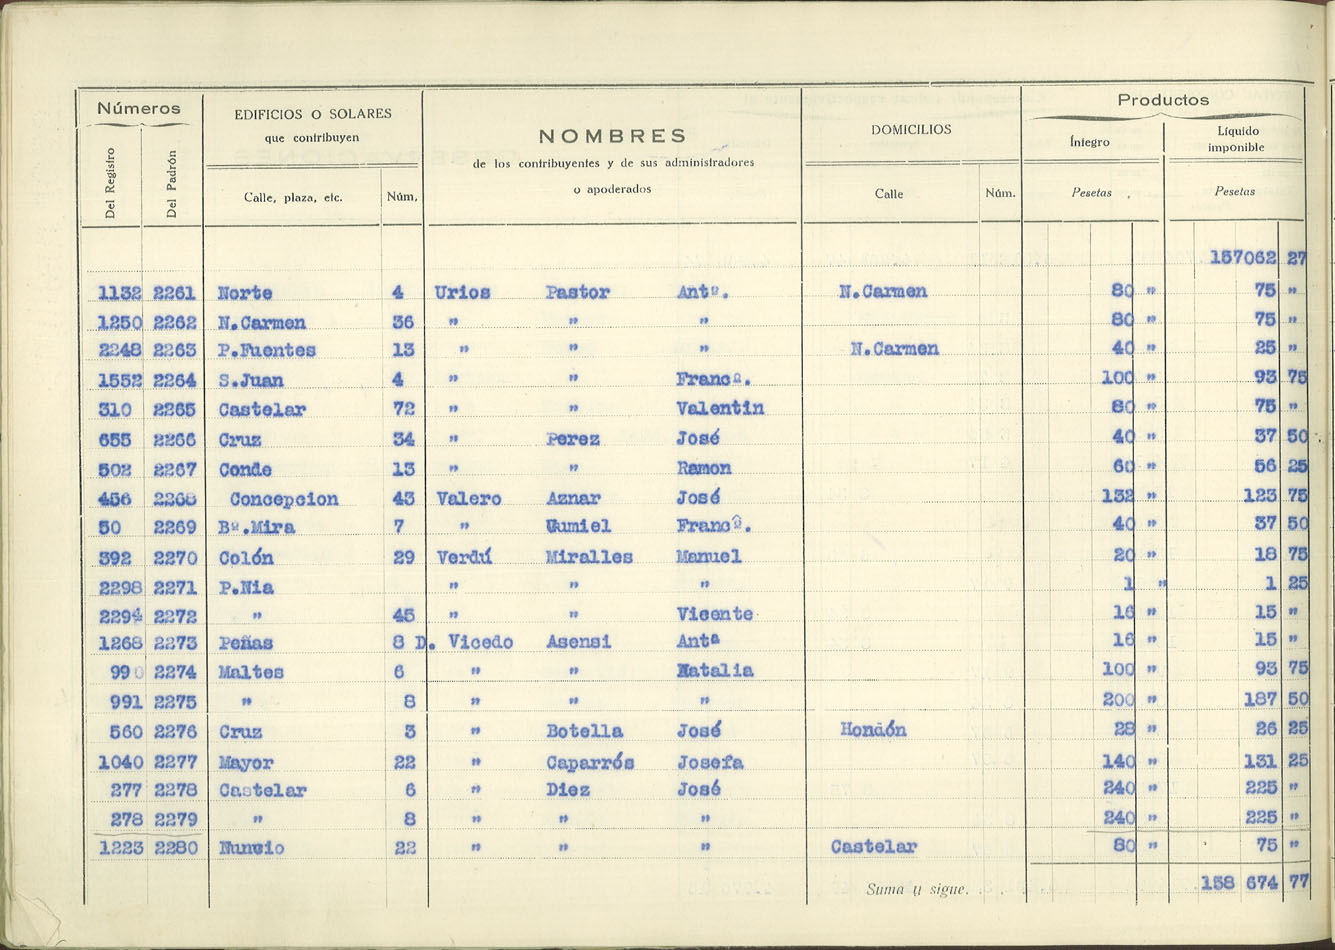 Números EDIFICIOS O SOLARES que contribuyen NOMBRES de los contribuyentes y de sus administradores o apoderados DOMICILIOS Productos
Del Registro Del Padrón Calle, plaza, etc. Núm. Calle Núm. Íntegro Pesetas Líquido imponible Pesetas
157062 27
1132 2261 Norte 4 Urios Pastor Antº. N.Carmen 80 " 75 "
1250 2262 N.Carmen 36 " " " 80 " 75 "
2248 2263 P.Fuentes 13 " " " N.Carmen 40 " 25 "
1552 2264 S.Juan 4 " " Francº. 100 " 93 75
310 2265 Castelar 72 " " Valentin 80 " 75 "
655 2266 Cruz 34 " Perez José 40 " 37 50
502 2267 Conde 13 " " Ramon 60 " 56 25
456 2268 Concepcion 43 Valero Aznar José 132 " 123 75
50 2269 Bº.Mira 7 " Gumiel Francº. 40 " 37 50
392 2270 Colón 29 Verdú Miralles Manuel 20 " 18 75
2298 2271 P.Nia " " " 1 " 1 25
2294 2272 " 45 " " Vicente 16 " 15 "
1268 2273 Peñas 8 D. Vicedo Asensi Antª 16 " 15 "
990 2274 Maltes 6 " " Natalia 100 " 93 75
991 2275 " 8 " " " 200 " 187 50
560 2276 Cruz 3 " Botella José Hondón 28 " 26 25
1040 2277 Mayor 22 " Caparrós Josefa 140 " 131 25
277 2278 Castelar 6 " Diez José 240 " 225 "
278 2279 " 8 " " " 240 " 225 "
1223 2280 Nuncio 22 " " " Castelar 80 " 75 "
Suma y sigue. 158 674 77